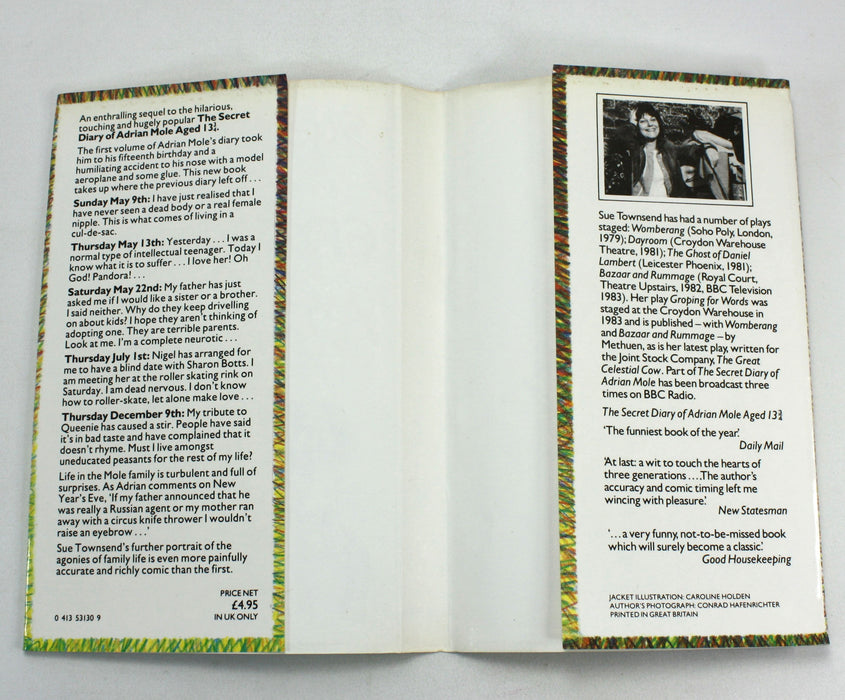 An enthralling sequel to the hilarious,
touching and hugely popular The Secret
Diary of Adrian Mole Aged 13¾.
The first volume of Adrian Mole's diary took
him to his fifteenth birthday and a
humiliating accident to his nose with a model
aeroplane and some glue. This new book
takes up where the previous diary left off . . .
Sunday May 9th: I have just realised that I
have never seen a dead body or a real female
nipple. This is what comes of living in a
cul-de-sac.
Thursday May 13th: Yesterday . . . I was a
normal type of intellectual teenager. Today I
know what it is to suffer . . . I love her! Oh
God! Pandora! . . .
Saturday May 22nd: My father has just
asked me if I would like a sister or a brother.
I said neither. Why do they keep drivelling
on about kids? I hope they aren't thinking of
adopting one. They are terrible parents.
Look at me. I'm a complete neurotic . . .
Thursday July 1st: Nigel has arranged for
me to have a blind date with Sharon Botts. I
am meeting her at the roller skating rink on
Saturday. I am dead nervous. I don't know
how to roller-skate, let alone make love . . .
Thursday December 9th: My tribute to
Queenie has caused a stir. People have said
it's in bad taste and have complained that it
doesn't rhyme. Must I live amongst
uneducated peasants for the rest of my life?
Life in the Mole family is turbulent and full of
surprises. As Adrian comments on New
Year's Eve, 'If my father announced that he
was really a Russian agent or my mother ran
away with a circus knife thrower I wouldn't
raise an eyebrow . . .'
Sue Townsend's further portrait of the
agonies of family life is even more painfully
accurate and richly comic than the first.
PRICE NET
£4.95
IN UK ONLY
0 413 53130 9
Sue Townsend has had a number of plays
staged: Womberang (Soho Poly, London,
1979); Dayroom (Croydon Warehouse
Theatre, 1981); The Ghost of Daniel
Lambert (Leicester Phoenix, 1981);
Bazaar and Rummage (Royal Court,
Theatre Upstairs, 1982, BBC Television
1983). Her play Groping for Words was
staged at the Croydon Warehouse in
1983 and is published – with Womberang
and Bazaar and Rummage – by
Methuen, as is her latest play, written for
the Joint Stock Company, The Great
Celestial Cow. Part of The Secret Diary of
Adrian Mole has been broadcast three
times on BBC Radio.
The Secret Diary of Adrian Mole Aged 13¾
'The funniest book of the year.'
Daily Mail
'At last: a wit to touch the hearts of
three generations . . . . The author's
accuracy and comic timing left me
wincing with pleasure.'
New Statesman
'. . . a very funny, not-to-be-missed book
which will surely become a classic.'
Good Housekeeping
JACKET ILLUSTRATION: CAROLINE HOLDEN
AUTHOR'S PHOTOGRAPH: CONRAD HAFENRICHTER
PRINTED IN GREAT BRITAIN